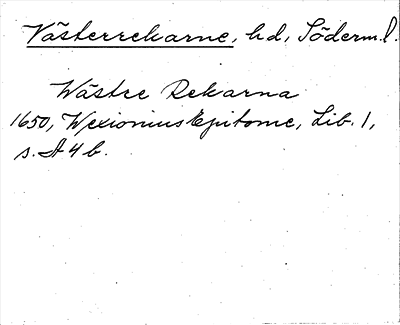 Västerrekarne, hd, Söderm.l.
Wästre Rekarna
1650, Wexionius Epitome, Lib. 1,
s. A 4 b.